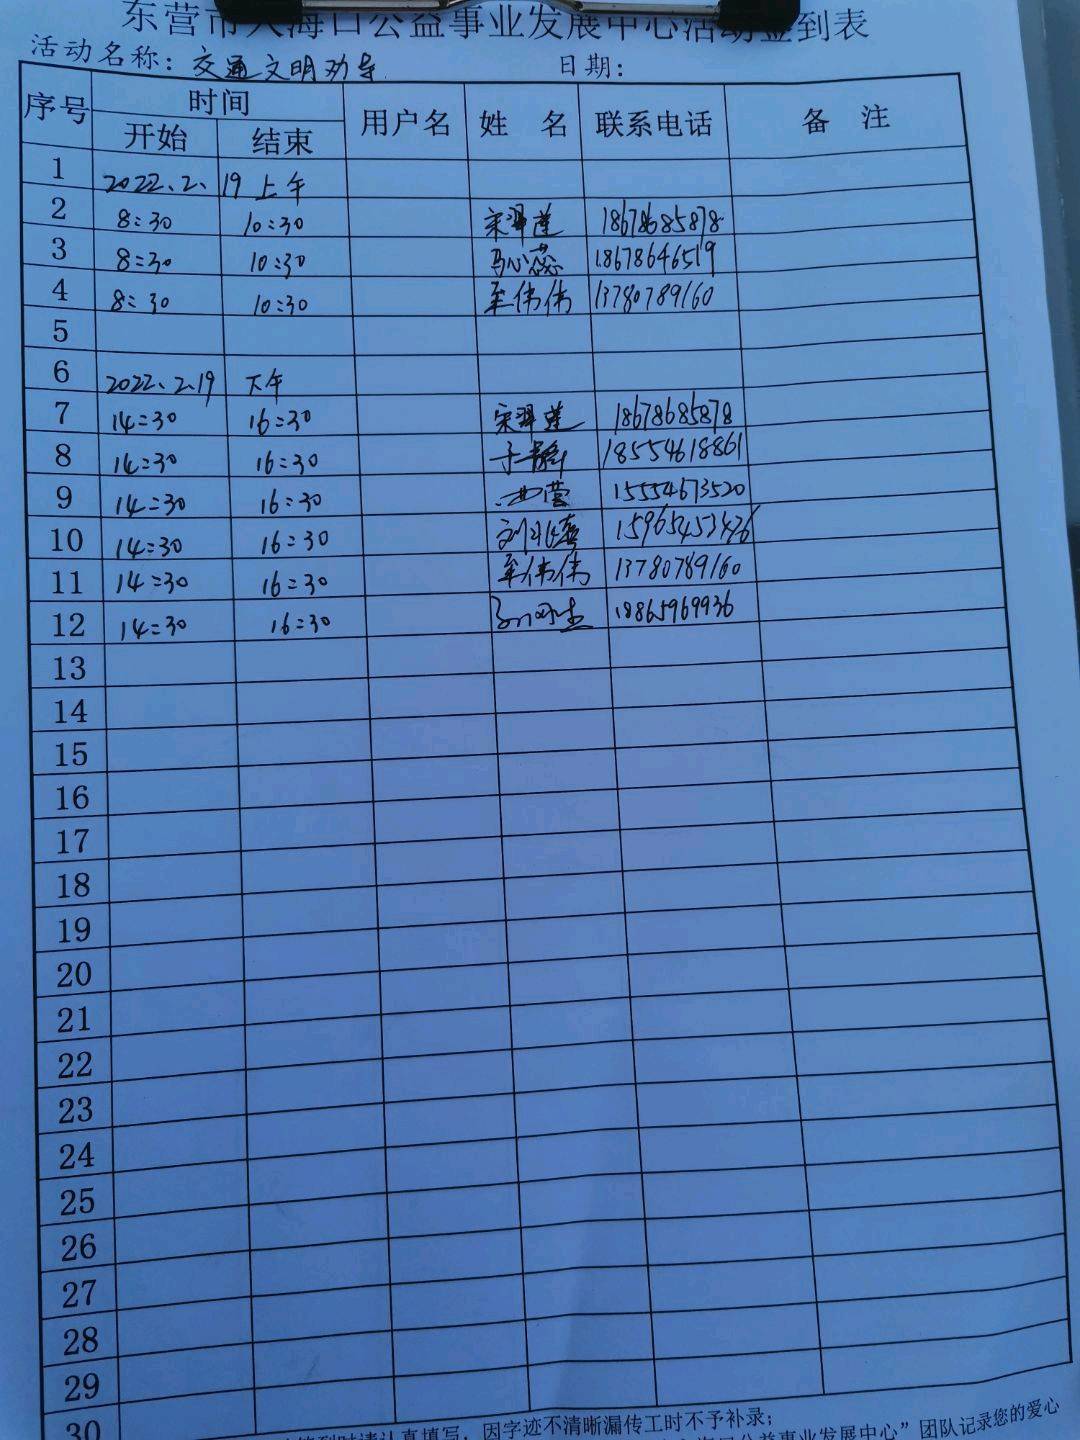 东营市大海口公益事业发展中心活动签到表
活动名称：交通文明劝导 日期：
序号 时间 用户名 姓 名 联系电话 备 注
开始 结束
1 2022、2、19 上午
2 8:30 10:30 18678685878
3 8:30 10:30 马心蕊 18678646519
4 8:30 10:30 伟伟 13780789160
5
6 2022、2、19 下午
7 14:30 16:30 18678685878
8 14:30 16:30 于静 18554618861
9 14:30 16:30 15554673520
10 14:30 16:30 刘 15965453426
11 14:30 16:30 伟伟 13780789160
12 14:30 16:30 18865969936
13
14
15
16
17
18
19
20
21
22
23
24
25
26
27
28
29
30
到时请认真填写，因字迹不清晰漏传工时不予补录；
海口公益事业发展中心”团队记录您的爱心